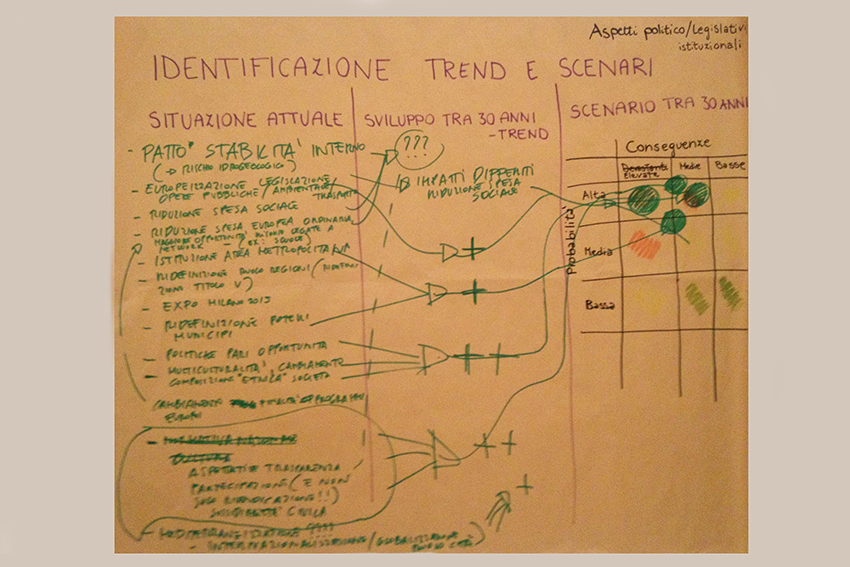 Aspetti politico/Legislativi
istituzionali
IDENTIFICAZIONE TREND E SCENARI
SITUAZIONE ATTUALE
- PATTO STABILITÀ INTERNO
(→ RISCHIO IDROGEOLOGICO)
- EUROPEIZZAZIONE LEGISLAZIONE
OPERE PUBBLICHE / AMBIENTALE /
TRASPORTI
- RIDUZIONE SPESA SOCIALE
- RIDUZIONE SPESA EUROPEA ORDINARIA,
MAGGIORE OPPORTUNITÀ LEGATE A
NETWORK - (ES: SCUOLE)
- ISTITUZIONE AREA METROPOLITANA
- RIDEFINIZIONE RUOLO REGIONI
ZIONE TITOLO V)
- EXPO MILANO 2015
- RIDEFINIZIONE POTERI
MUNICIPI
- POLITICHE PARI OPPORTUNITÀ
- MULTICULTURALITÀ, CAMBIAMENTO
COMPOSIZIONE "ETNICA" SOCIETÀ
CAMBIAMENTO FINALITÀ PROGRAMMI
EUROPEI
CULTURA
ASPETTATIVE TRASPARENZA
PARTECIPAZIONE (E NON
SOLO RIVENDICAZIONE!!)
CIVICA
????
- INTERNAZIONALIZZAZIONE / GLOBALIZZAZIONE
SVILUPPO TRA 30 ANNI
- TREND
???
...
IMPATTI DIFFERITI
RIDUZIONE SPESA
SOCIALE
+
+
+ +
+ +
+
SCENARIO TRA 30 ANNI
Conseguenze
Elevate
Medie
Basse
Probabilità
Alta
Media
Bassa